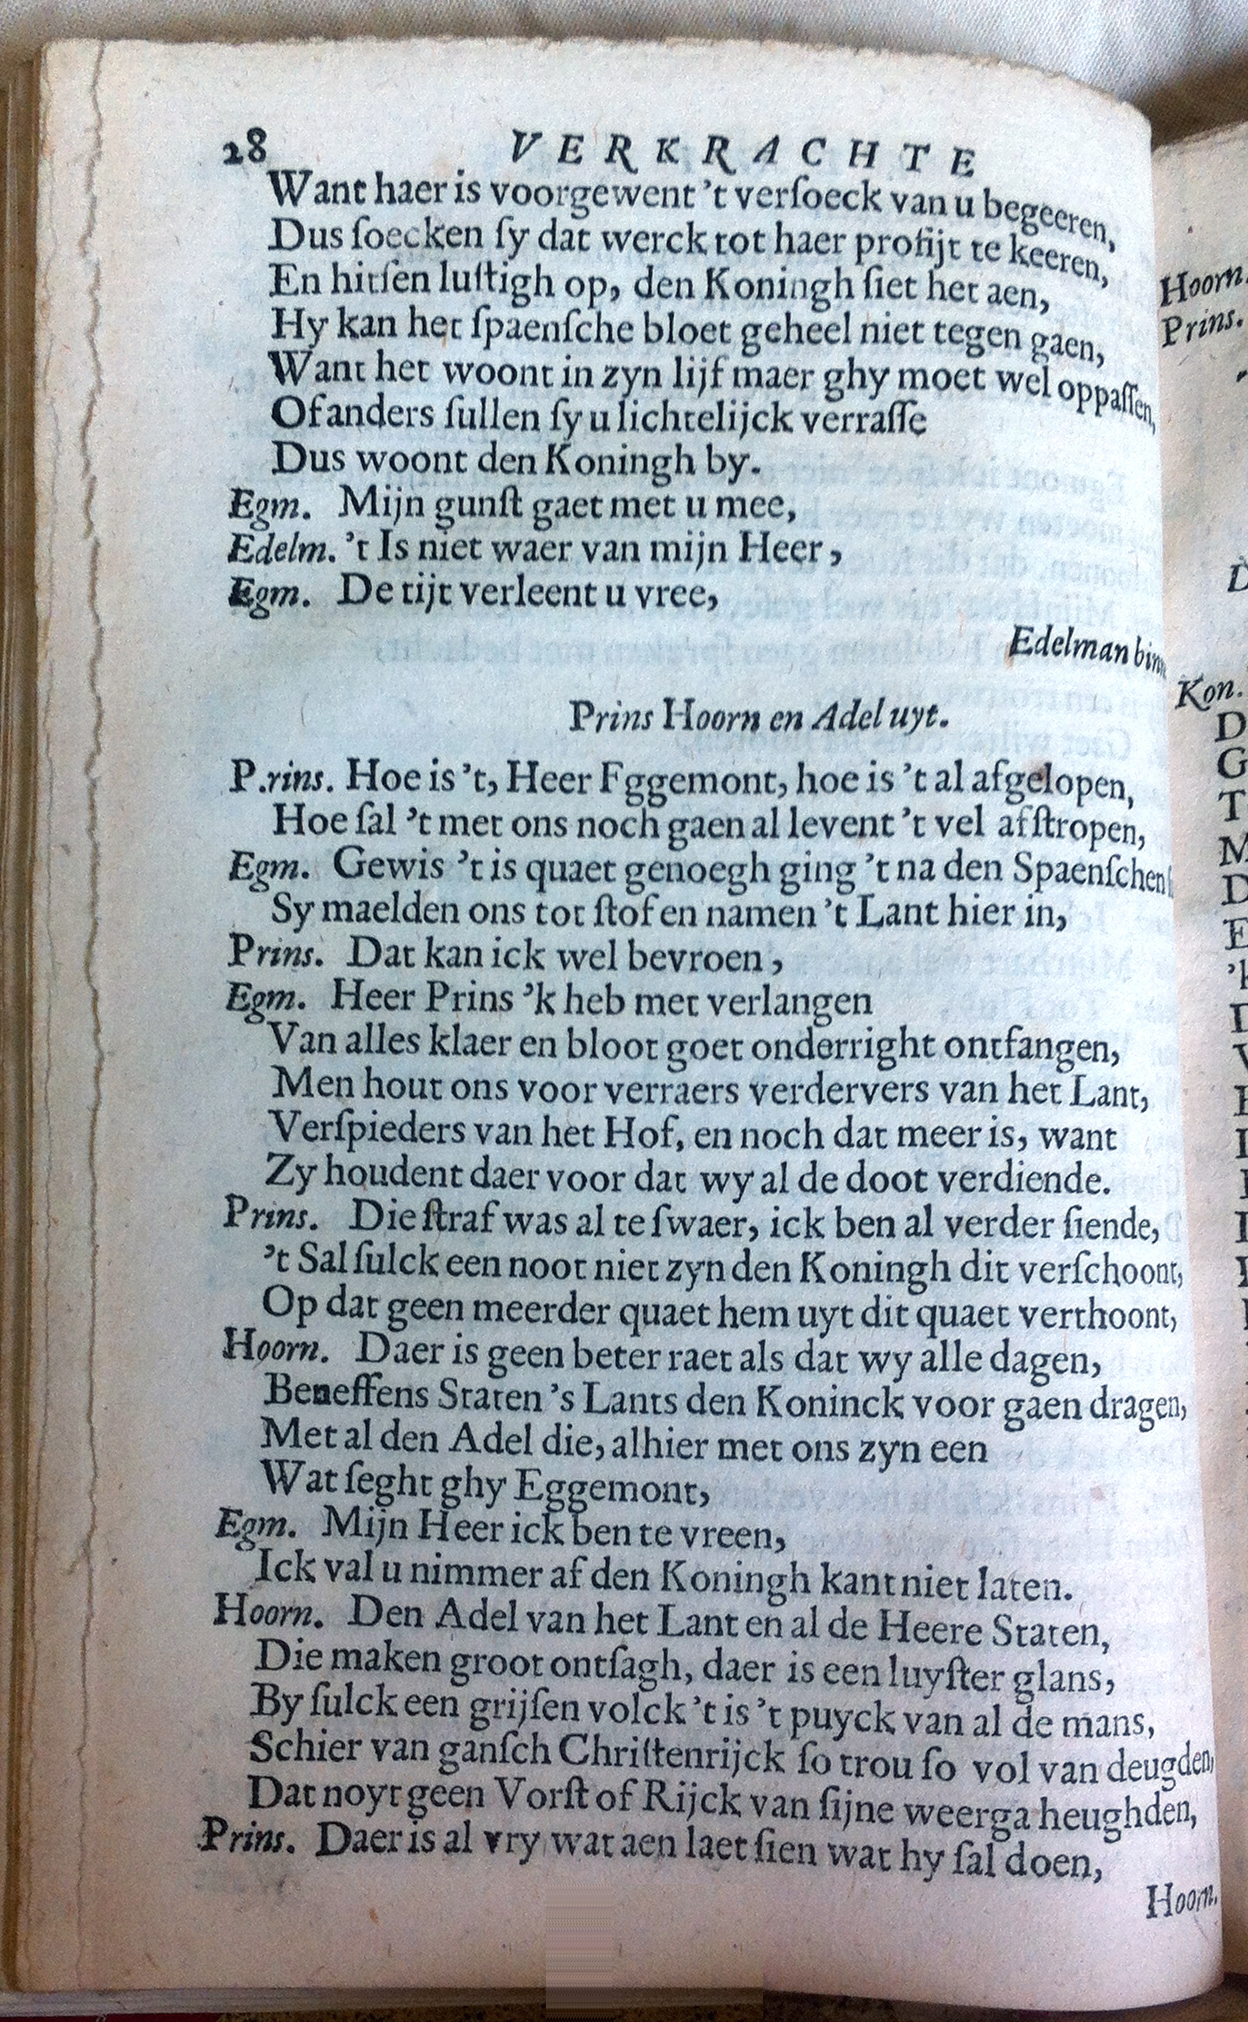 28 VERKRACHTE
Want haer is voorgewent 't verſoeck van u begeeren,
Dus ſoecken ſy dat werck tot haer profijt te keeren,
En hitſen luſtigh op, den Koningh ſiet het aen,
Hy kan het ſpaenſche bloet geheel niet tegen gaen,
Want het woont in zyn lijf maer ghy moet wel oppaſſen,
Of anders ſullen ſy u lichtelijck verraſſe
Dus woont den Koningh by.
Egm. Mijn gunſt gaet met u mee,
Edelm. 't Is niet waer van mijn Heer,
Egm. De tijt verleent u vree,
Edelman
Prins Hoorn en Adel uyt.
P.rins. Hoe is 't, Heer Fggemont, hoe is 't al afgelopen,
Hoe ſal 't met ons noch gaen al levent 't vel afſtropen,
Egm. Gewis 't is quaet genoegh ging 't na den Spaenſchen
Sy maelden ons tot ſtof en namen 't Lant hier in,
Prins. Dat kan ick wel bevroen,
Egm. Heer Prins 'k heb met verlangen
Van alles klaer en bloot goet onderright ontfangen,
Men hout ons voor verraers verdervers van het Lant,
Verſpieders van het Hof, en noch dat meer is, want
Zy houdent daer voor dat wy al de doot verdiende.
Prins. Die ſtraf was al te ſwaer, ick ben al verder ſiende,
't Sal ſulck een noot niet zyn den Koningh dit verſchoont,
Op dat geen meerder quaet hem uyt dit quaet verthoont,
Hoorn. Daer is geen beter raet als dat wy alle dagen,
Beneffens Staten 's Lants den Koninck voor gaen dragen,
Met al den Adel die, alhier met ons zyn een
Wat ſeght ghy Eggemont,
Egm. Mijn Heer ick ben te vreen,
Ick val u nimmer af den Koningh kant niet laten.
Hoorn. Den Adel van het Lant en al de Heere Staten,
Die maken groot ontſagh, daer is een luyſter glans,
By ſulck een grijſen volck 't is 't puyck van al de mans,
Schier van ganſch Chriſtenrijck ſo trou ſo vol van deugden,
Dat noyt geen Vorſt of Rijck van ſijne weerga heughden,
Prins. Daer is al vry wat aen laet ſien wat hy ſal doen,
Hoorn.
Hoorn.
Prins.
Kon.